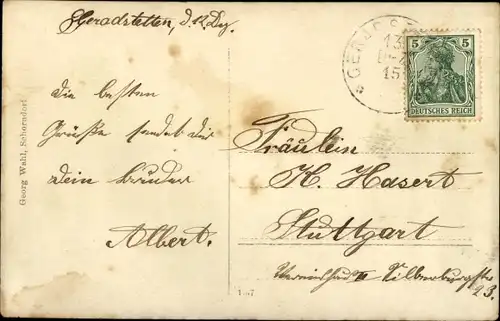 Geradstetten, d. 12. Dez.
Die besten
Grüße sendet dir
Dein Bruder
Albert.
Georg Wahl, Schorndorf
GERADS
13
15
5 5
DEUTSCHES REICH
Fräulein
K. Hasert
Stuttgart
Vereinshaus II Silberburgstr.
93.